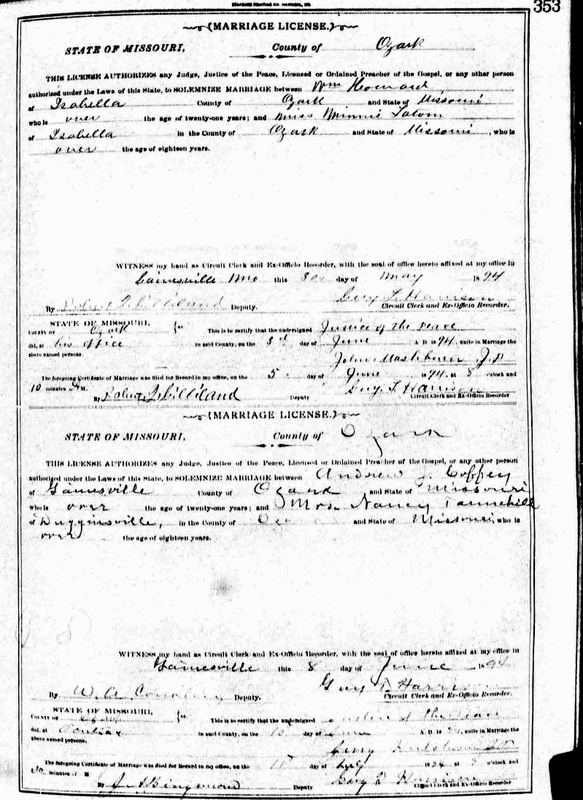 353
(MARRIAGE LICENSE.)
STATE OF MISSOURI, County of Ozark
THIS LICENSE AUTHORIZES any Judge, Justice of the Peace, Licensed or Ordained Preacher of the Gospel, or any other person
authorized under the Laws of this State, to SOLEMNIZE MARRIAGE between Wm Howard
of Isabella County of Ozark and State of Missouri
who is over the age of twenty-one years; and Miss Minnie Tatom
of Isabella in the County of Ozark and State of Missouri, who is
over the age of eighteen years.
WITNESS my hand as Circuit Clerk and Ex-Officio Recorder, with the seal of office hereto affixed at my office in
Gainesville Mo this 30 day of May 1894
Guy T. Harrison
By Robert Q. Gilliland Deputy. Circuit Clerk and Ex-Officio Recorder.
STATE OF MISSOURI,
County of Ozark ss This is to certify that the undersigned Justice of the Peace
did, at his office in said County, on the 3d day of June A. D. 1894, unite in Marriage the
above named persons. John Mashburn J.P
The foregoing Certificate of Marriage was filed for Record in my office, on the 5 day of June 1894, at 8 o'clock and
10 minutes A M. Guy T. Harrison
By Robert Q. Gilliland Deputy Circuit Clerk and Ex-Officio Recorder
(MARRIAGE LICENSE.)
STATE OF MISSOURI, County of Ozark
THIS LICENSE AUTHORIZES any Judge, Justice of the Peace, Licensed or Ordained Preacher of the Gospel, or any other person
authorized under the Laws of this State, to SOLEMNIZE MARRIAGE between Andrew Coffey
of Gainesville County of Ozark and State of Missouri
who is over the age of twenty-one years; and Mrs. Nancy Tannehill
of Dugginsville, in the County of and State of Missouri, who is
over the age of eighteen years.
WITNESS my hand as Circuit Clerk and Ex-Officio Recorder, with the seal of office hereto affixed at my office in
Gainesville this 8 day of June 1894
Guy T. Harrison
By W. A. Deputy. Circuit Clerk and Ex-Officio Recorder.
STATE OF MISSOURI,
County of This is to certify that the undersigned
did, at Pontiac in said County, on the day of June A. D. unite in Marriage the
above named persons.
The foregoing Certificate of Marriage was filed for Record in my office, on the day of July at 8 o'clock and
minutes M Harrison
By Deputy Circuit Clerk and Ex-Officio Recorder